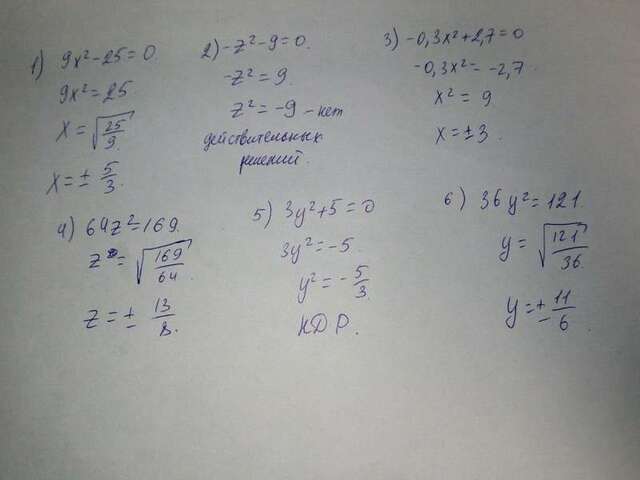 1) 9x²-25=0.
9x²=25
x=√(25/9).
x=± 5/3
2) -z²-9=0.
-z²=9
z²=-9 - нет
действительных
решений.
3) -0,3x²+2,7=0
-0,3x²=-2,7.
x²=9
x=±3.
4) 64z²=169.
z=√(169/64)
z=± 13/8.
5) 3y²+5=0
3y²=-5.
y²=-5/3.
НДР.
6) 36y²=121.
y=√(121/36)
y=± 11/6.